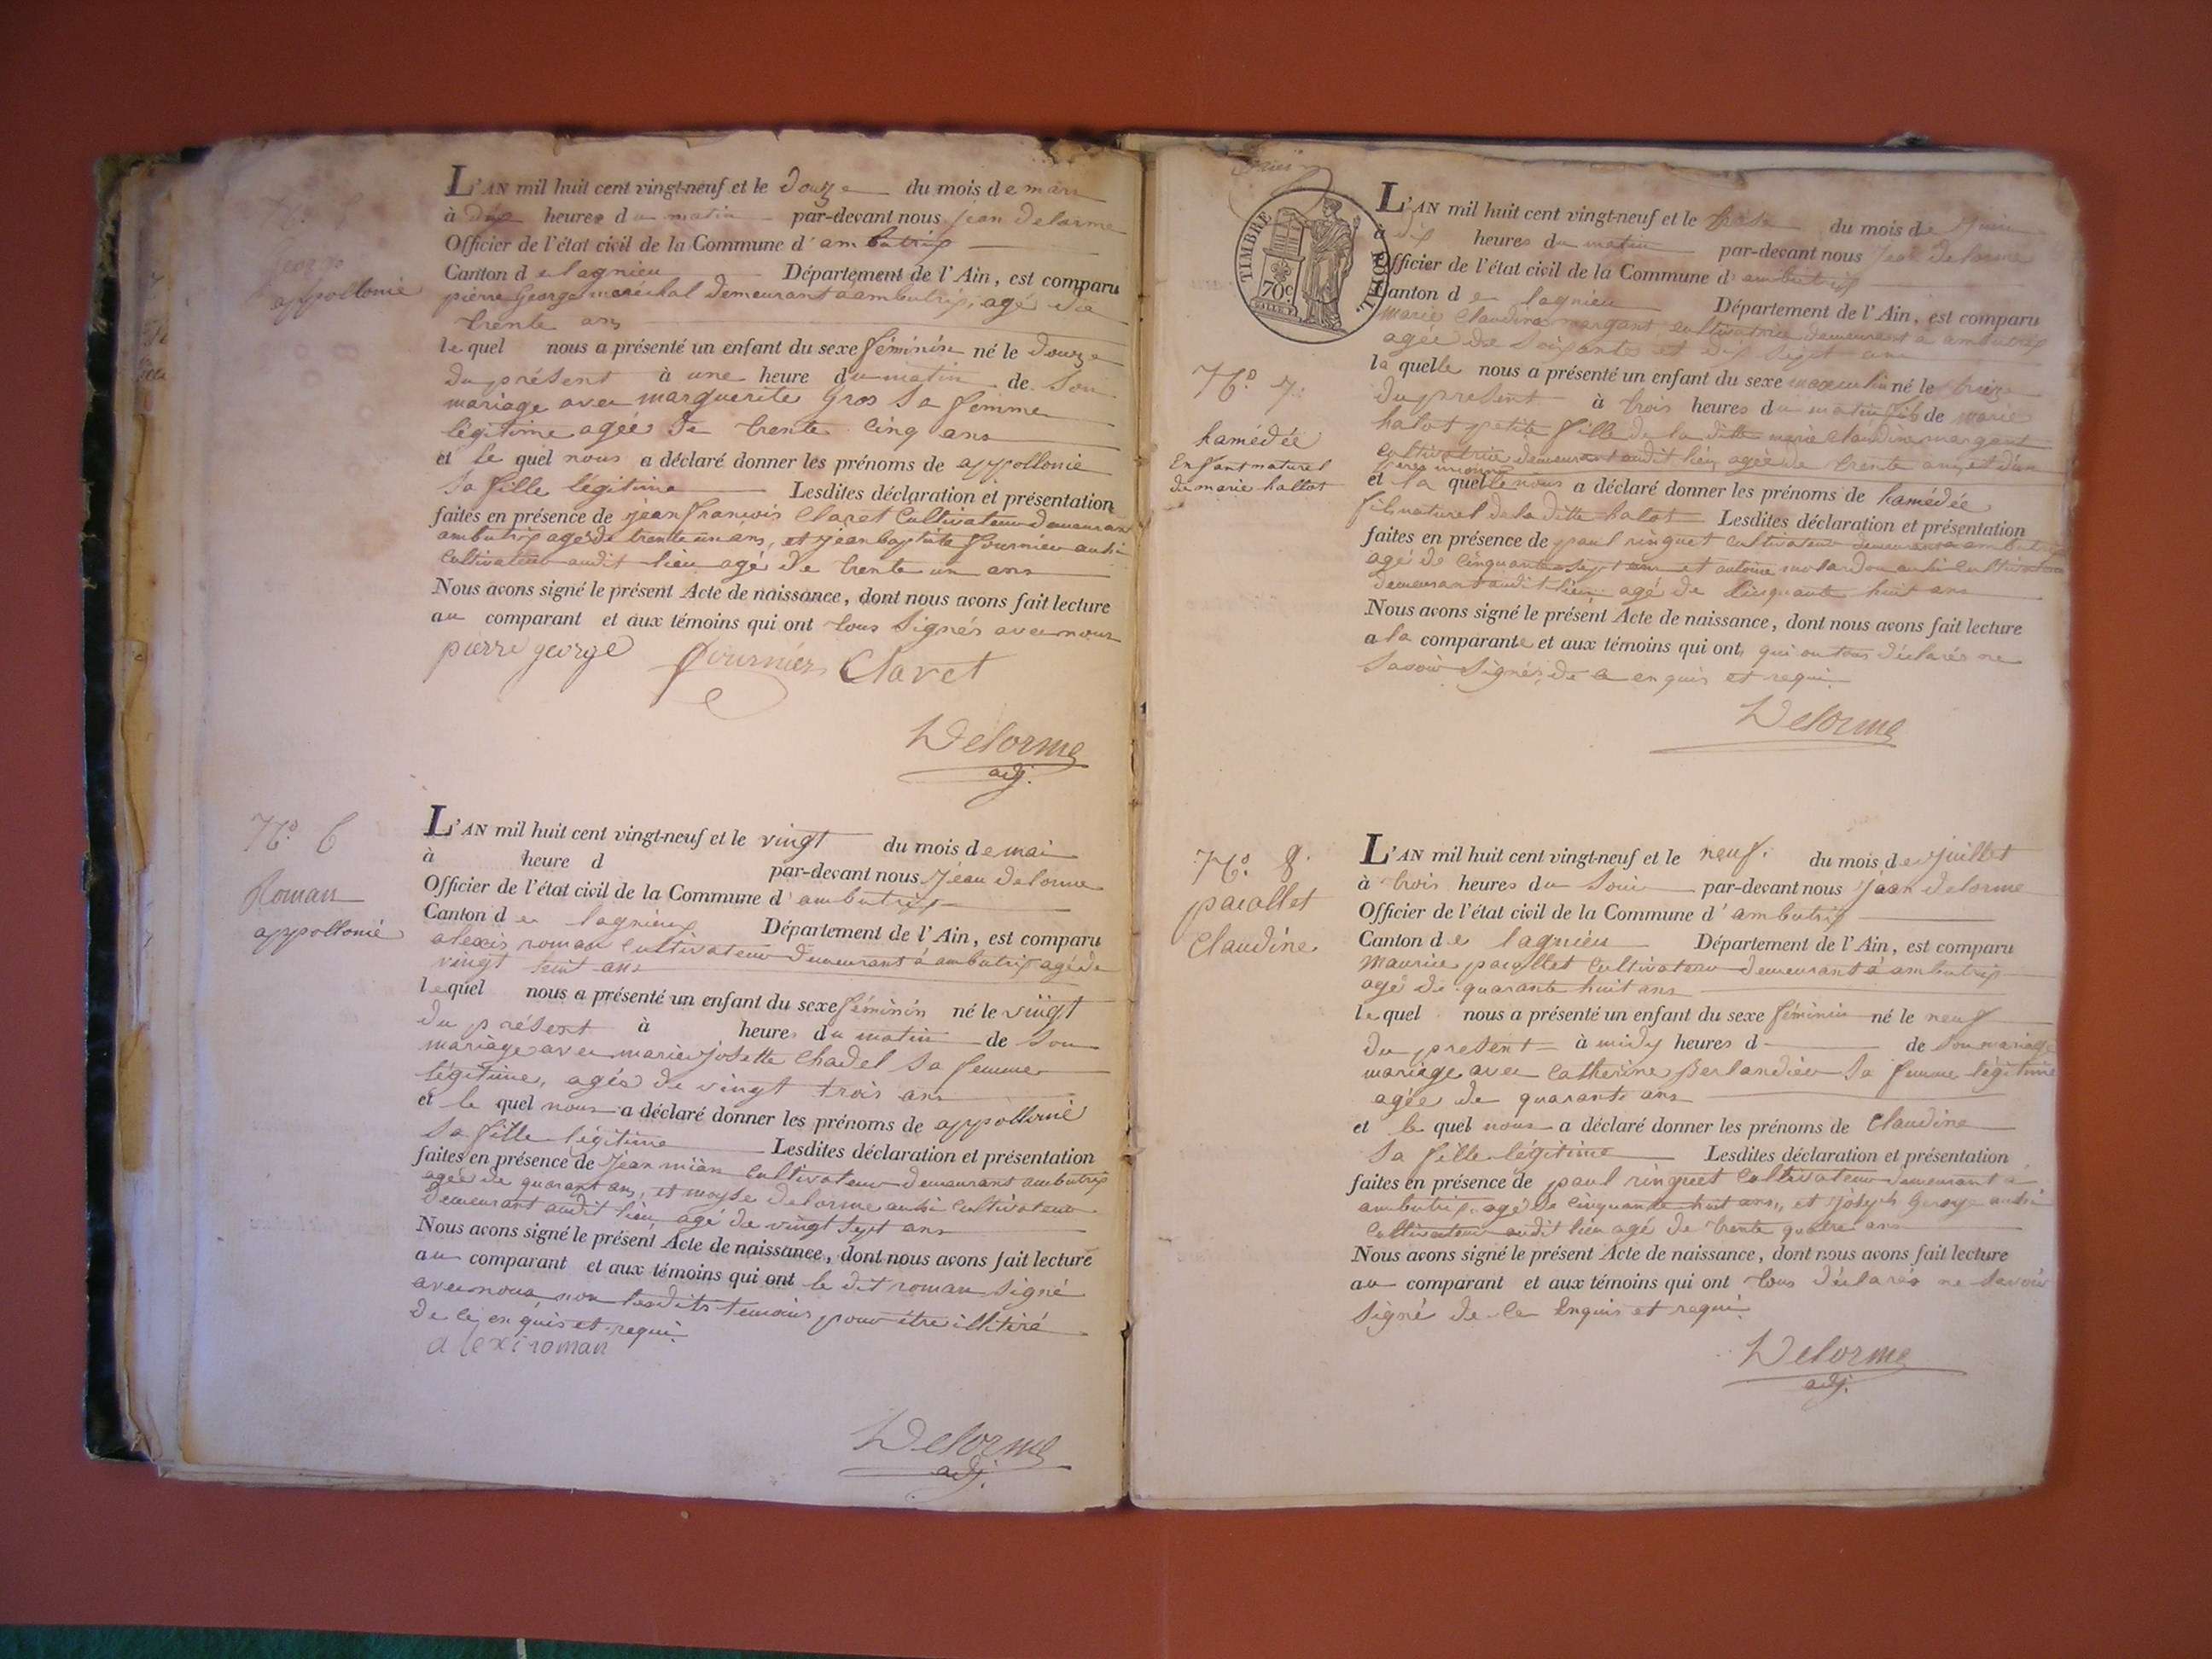 George
appollonie
L'AN mil huit cent vingt-neuf et le douze du mois de mars
à dix heures du matin par-devant nous jean delorme
Officier de l'état civil de la Commune d'ambutrix
Canton de lagnieu Département de l'Ain, est comparu
pierre George maréchal demeurant à ambutrix, agé de
trente ans
lequel nous a présenté un enfant du sexe féminin né le douze
du présent à une heure du matin de son
mariage avec marguerite Gros sa femme
légitime agée de trente cinq ans
et le quel nous a déclaré donner les prénoms de appollonie
sa fille légitime Lesdites déclaration et présentation
faites en présence de jean françois Claret Cultivateur demeurant
ambutrix agé de trente un ans, et jean baptiste fournier aussi
cultivateur audit lieu agé de trente un ans
Nous avons signé le présent Acte de naissance, dont nous avons fait lecture
au comparant et aux témoins qui ont tous signés avec nous
pierre george fournier Claret
Delorme
adj.
No. 6
Roman
appollonie
L'AN mil huit cent vingt-neuf et le vingt du mois de mai
à heure d par-devant nous jean delorme
Officier de l'état civil de la Commune d'ambutrix
Canton de lagnieu Département de l'Ain, est comparu
alexis roman cultivateur demeurant à ambutrix agé de
vingt huit ans
lequel nous a présenté un enfant du sexe féminin né le vingt
du présent à heures du matin de son
mariage avec marie josette Chadel sa femme
légitime, agée de vingt trois ans
et le quel nous a déclaré donner les prénoms de appollonie
sa fille légitime Lesdites déclaration et présentation
faites en présence de jean miān cultivateur demeurant ambutrix
agée de quarant ans, et moyse delorme aussi cultivateur
demeurant audit lieu agé de vingt sept ans
Nous avons signé le présent Acte de naissance, dont nous avons fait lecture
au comparant et aux témoins qui ont le dit roman signé
avec nous non lesdits temoins pour être illitéré
de ce enquis et requi.
alexi roman
Delorme
adj.
TIMBRE ROYAL
70c
No. 7.
hamédée
Enfant naturel
de marie hallot
L'AN mil huit cent vingt-neuf et le du mois de juin
à dix heures du matin par-devant nous jean delorme
Officier de l'état civil de la Commune d'ambutrix
Canton de lagnieu Département de l'Ain, est comparu
marie Claudine margant cultivatrice demeurant à ambutrix
agée de soixante et dix sept ans
la quelle nous a présenté un enfant du sexe masculin né le treize
du présent à trois heures du matin fils de marie
halot petite fille de la ditte marie claudine margant
cultivatrice demeurant audit lieu agée de trente ans et d'un
père inconnu
et la quelle nous a déclaré donner les prénoms de hamédée
fils naturel de la ditte halot Lesdites déclaration et présentation
faites en présence de paul ringuet cultivateur demeurant a ambutrix
agé de cinquante sept ans et antoine molardon aussi cultivateur
demeurant audit lieu agé de cinquante huit ans
Nous avons signé le présent Acte de naissance, dont nous avons fait lecture
a la comparante et aux témoins qui ont qui on tous déclarés ne
savoir signés de ce enquis et requi.
Delorme
No. 8.
pacollet
Claudine
L'AN mil huit cent vingt-neuf et le neuf. du mois de juillet
à trois heures du soir par-devant nous jean delorme
Officier de l'état civil de la Commune d'ambutrix
Canton de lagnieu Département de l'Ain, est comparu
maurice pacollet cultivateur demeurant à ambutrix
agé de quarante huit ans
lequel nous a présenté un enfant du sexe féminin né le neuf
du présent à midy heures d de son mariage
mariage avec catherine Berlandier sa femme légitime
agée de quarante ans
et le quel nous a déclaré donner les prénoms de Claudine
sa fille légitime Lesdites déclaration et présentation
faites en présence de paul ringuet cultivateur demeurant a
ambutrix agé de cinquante huit ans, et joseph George aussi
cultivateur audit lieu agé de trente quatre ans
Nous avons signé le présent Acte de naissance, dont nous avons fait lecture
au comparant et aux témoins qui ont tous déclarés ne savoir
signé de ce enquis et requi.
Delorme
adj.